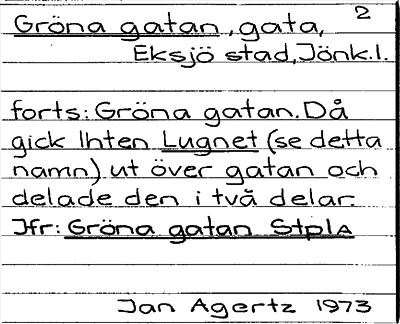 2
Gröna gatan, gata,
Eksjö stad, Jönk.l.
forts: Gröna gatan. Då
gick lhten Lugnet (se detta
namn) ut över gatan och
delade den i två delar.
Jfr: Gröna gatan StplA
Jan Agertz 1973